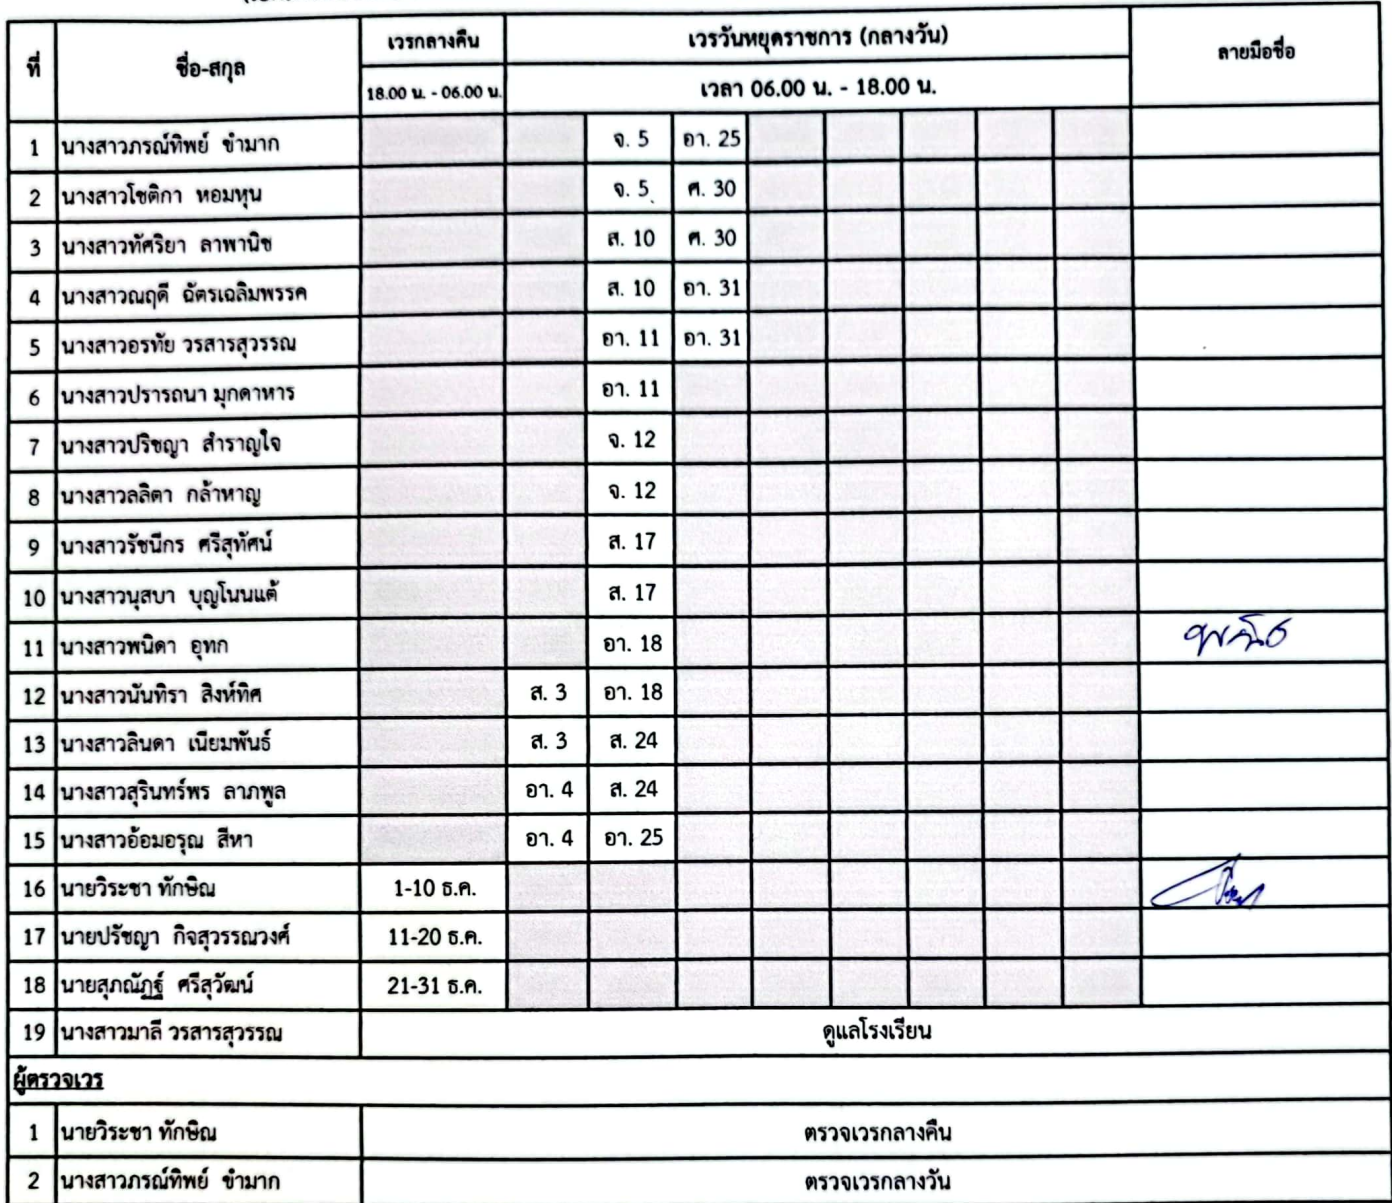 ที่ ชื่อ-สกุล เวรกลางคืน เวรวันหยุดราชการ (กลางวัน) ลายมือชื่อ
18.00 น. - 06.00 น. เวลา 06.00 น. - 18.00 น.
1 นางสาวภรณ์ทิพย์ ขำมาก จ. 5 อา. 25
2 นางสาวโชติกา หอมหุน จ. 5 ศ. 30
3 นางสาวทัศริยา ลาพานิช ส. 10 ศ. 30
4 นางสาวณฤดี ฉัตรเฉลิมพรรค ส. 10 อา. 31
5 นางสาวอรทัย วรสารสุวรรณ อา. 11 อา. 31
6 นางสาวปรารถนา มุกดาหาร อา. 11
7 นางสาวปริชญา สำราญใจ จ. 12
8 นางสาวลลิตา กล้าหาญ จ. 12
9 นางสาวรัชนีกร ศรีสุทัศน์ ส. 17
10 นางสาวนุสบา บุญโนนแต้ ส. 17
11 นางสาวพนิดา อุทก อา. 18
12 นางสาวนันทิรา สิงห์ทิศ ส. 3 อา. 18
13 นางสาวลินดา เนียมพันธ์ ส. 3 ส. 24
14 นางสาวสุรินทร์พร ลาภพูล อา. 4 ส. 24
15 นางสาวอ้อมอรุณ สีหา อา. 4 อา. 25
16 นายวิระชา ทักษิณ 1-10 ธ.ค.
17 นายปรัชญา กิจสุวรรณวงศ์ 11-20 ธ.ค.
18 นายสุภณัฏฐ์ ศรีสุวัฒน์ 21-31 ธ.ค.
19 นางสาวมาลี วรสารสุวรรณ ดูแลโรงเรียน
ผู้ตรวจเวร
1 นายวิระชา ทักษิณ ตรวจเวรกลางคืน
2 นางสาวภรณ์ทิพย์ ขำมาก ตรวจเวรกลางวัน